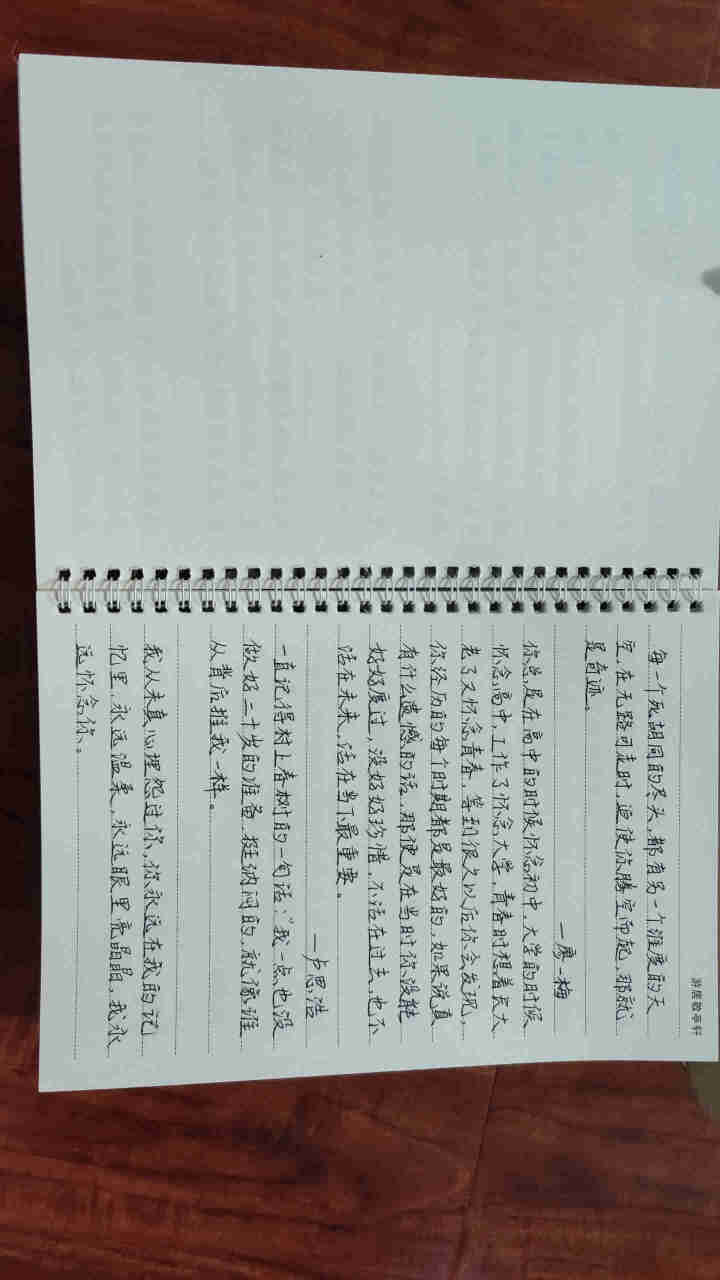 游居敬亭轩
每一个死胡同的尽头,都有另一个维度的天
空,在无路可走时,迫使你腾空而起,那就
是奇迹。
—廖一梅
你总是在高中的时候怀念初中,大学的时候
怀念高中,工作了怀念大学,青春时想着长大
老了又怀念青春,等到很久以后你会发现,
你经历的每个时期都是最好的,如果说真
有什么遗憾的话,那便是在当时你没能
好好度过,没好好珍惜,不活在过去,也不
活在未来,活在当下最重要。
—卢思浩
一直记得村上春树的一句话:“我一点也没
做好二十岁的准备,挺纳闷的,就像谁
从背后推我一样。
我从未真心埋怨过你,你永远在我的记
忆里,永远温柔,永远眼里亮晶晶,我永
远怀念你。